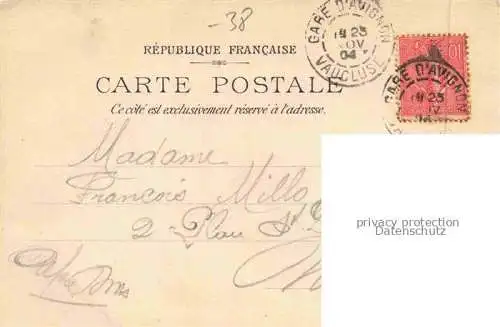 -38
GARE D'AVIGNON
19 25
NOV
04
VAUCLUSE
GARE D'AVIGNON
19 25
10
RÉPUBLIQUE FRANÇAISE
CARTE POSTALE
Ce côté est exclusivement réservé à l'adresse.
Madame
François Millo
2 Place St
privacy protection
Datenschutz